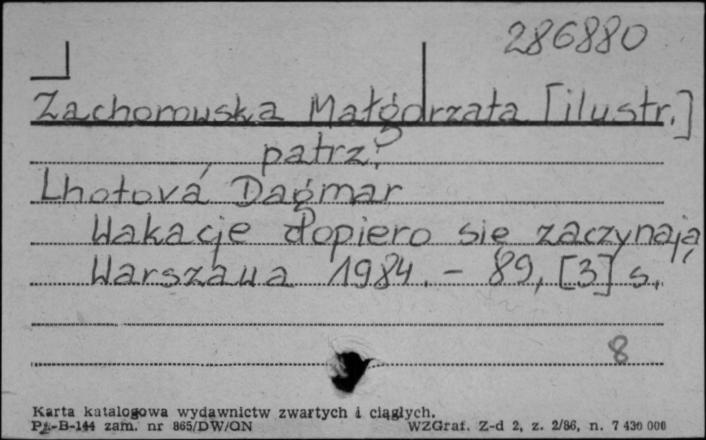 286880
Zachorowska Małgorzata [ilustr.]
patrz:
Lhotová Dagmar
Wakacje dopiero się zaczynają
Warszawa 1984. - 89, [3] s.
8
Karta katalogowa wydawnictw zwartych i ciągłych.
Pu-B-144 zam. nr 865/DW/ON WZGraf. Z-d 2, z. 2/86, n. 7 430 000